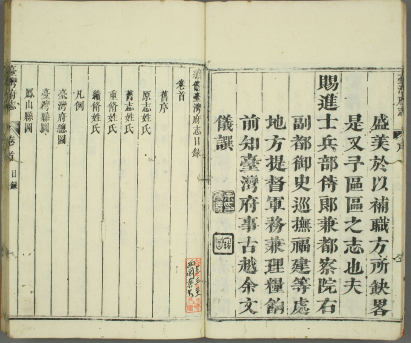 盛美於以補職方所缺畧
是又予區區之志也夫
賜進士兵部侍郎兼都察院右
副都御史巡撫福建等處
地方提督軍務兼理糧餉
前知臺灣府事古越余文
儀譔
續脩臺灣府志目錄
卷首
舊序
原志姓氏
舊志姓氏
重脩姓氏
續脩姓氏
凡例
臺灣府總圖
臺灣縣圖
鳳山縣圖
臺灣府志 卷首 目錄